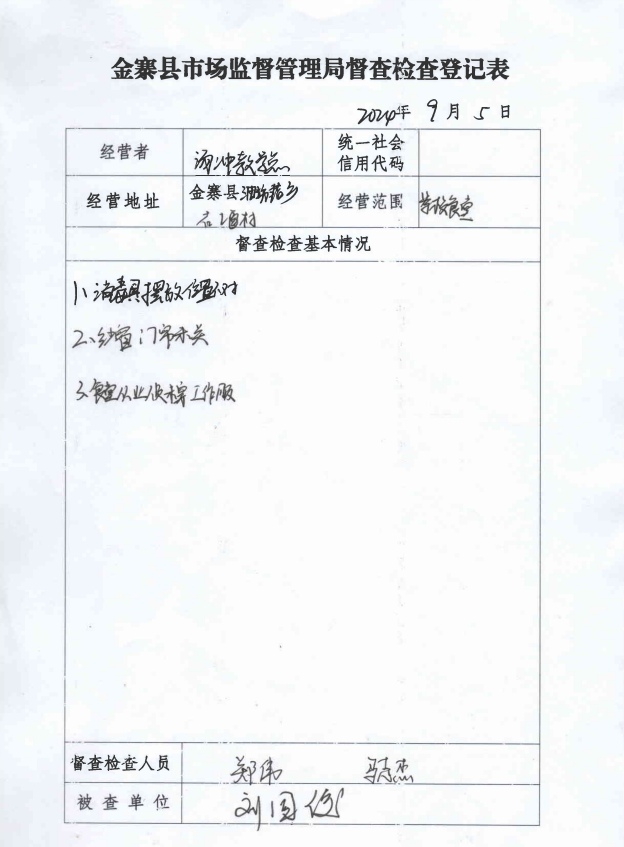 金寨县市场监督管理局督查检查登记表
2024年 9月 5日
经营者 冲教学点 统一社会信用代码
经营地址 金寨县 乡 村 经营范围 学校食堂
督查检查基本情况
1、消毒具摆放位置不对
2、食堂门帘未关
3、食堂从业人员未穿工作服
督查检查人员 郑伟 杰
被查单位 刘国